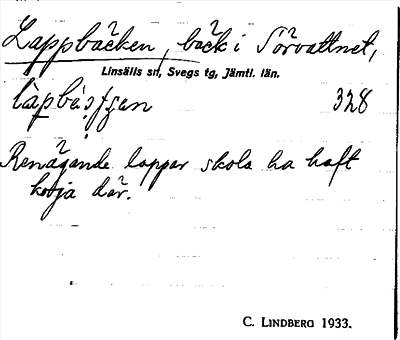 Lappbäcken, bäck i Sörvattnet,
Linsälls sn, Svegs tg, Jämtl. län.
328
Renägande lappar skola ha haft
kåja där.
C. LINDBERG 1933.